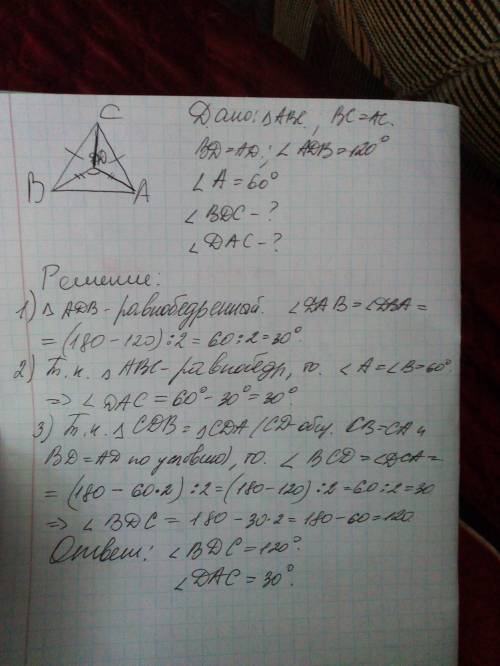 C
D
B
A
Дано: △ABC, BC=AC.
BD=AD; ∠ADB=120°
∠A=60°
∠BDC-?
∠DAC-?
Решение:
1) △ADB-равнобедренный. ∠DAB=∠DBA=
=(180-120):2=60:2=30°.
2) Т.к. △ABC-равнобедр, то. ∠A=∠B=60°
=> ∠DAC=60°-30°=30°
3) Т.к. △CDB=△CDA (CD-общ. CB=CA и
BD=AD по условию), то. ∠BCD=∠DCA=
=(180-60·2):2=(180-120):2=60:2=30
=> ∠BDC=180-30·2=180-60=120
Ответ: ∠BDC=120°.
∠DAC=30°.